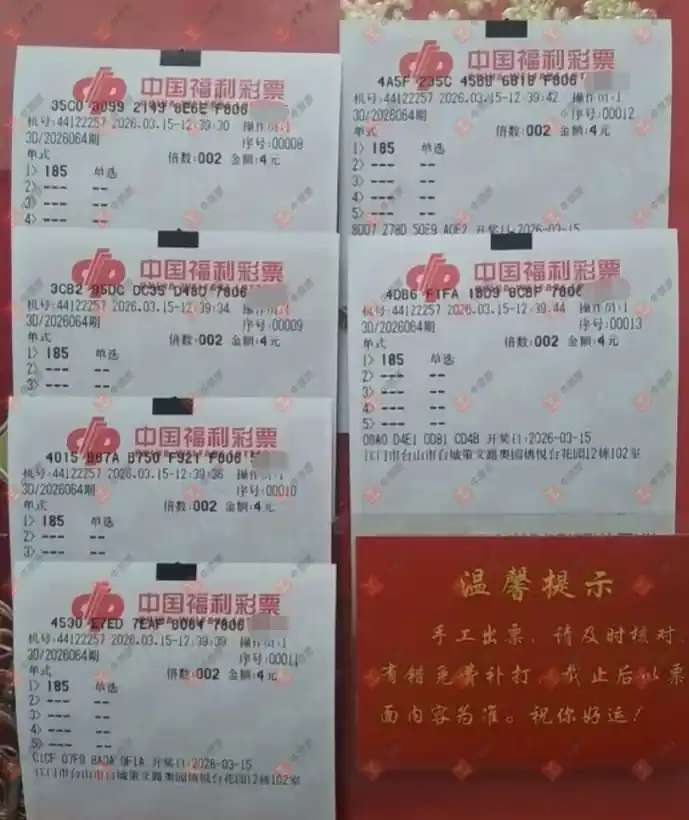 中国福利彩票
35C0 3099 2149 6E6E F606
机号:44122257 2026.03.15-12:39:30 操作员:1
3D/2026064期 序号:00008
单式 倍数:002 金额:4元
1> 185 单选
2> --- --
3> --- --
4> --- --
中国福利彩票
3CB2 95DC DC35 D48C 7606
机号:44122257 2026.03.15-12:39:34 操作员:1
3D/2026064期 序号:00009
单式 倍数:002 金额:4元
1> 185 单选
2> --- --
3> --- --
中国福利彩票
4015 B67A B750 F921 F606
机号:44122257 2026.03.15-12:39:36 操作员:1
3D/2026064期 序号:00010
单式 倍数:002 金额:4元
1> 185 单选
2> --- --
3> --- --
中国福利彩票
4530 E7ED 7EAF 8064 7606
机号:44122257 2026.03.15-12:39:39 操作员:1
3D/2026064期 序号:00011
单式 倍数:002 金额:4元
1> 185 单选
2> --- --
3> --- --
4> --- --
5> --- --
开奖日:2026-03-15
江门市台山市台城策文路奥园锦悦台花园12栋102室
中国福利彩票
4A5F 235C 45B8 6818 F606
机号:44122257 2026.03.15-12:39:42 操作员:1
3D/2026064期 序号:00012
单式 倍数:002 金额:4元
1> 185 单选
2> --- --
3> --- --
4> --- --
5> --- --
8DD7 278D 50E9 A0E2 开奖日:2026-03-15
中国福利彩票
4DB6 F1FA 18D9 8C8F
机号:44122257 2026.03.15-12:39:44 操作员:1
3D/2026064期 序号:00013
单式 倍数:002 金额:4元
1> 185 单选
2> --- --
3> --- --
4> --- --
5> --- --
D8A0 D4E1 DD81 CD4B 开奖日:2026-03-15
江门市台山市台城策文路奥园锦悦台花园12栋102室
温馨提示
手工出票，请及时核对，
有错免费补打，截止后以票
面内容为准。祝你好运！